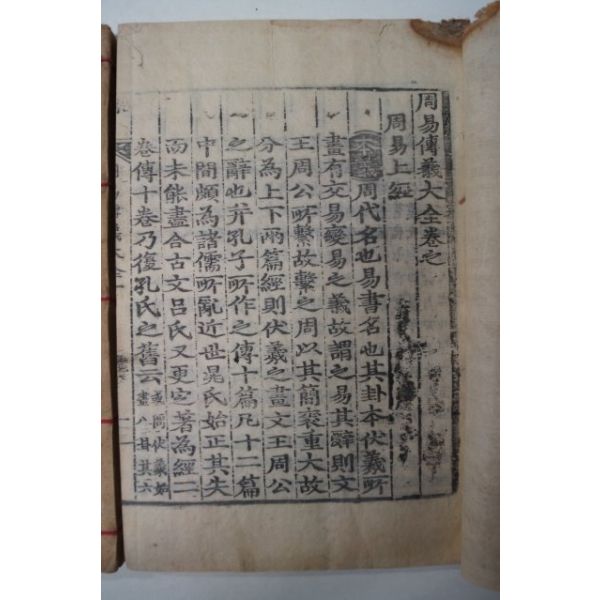 周易傳義大全卷之
周易上經
本義周代名也易書名也其卦本伏羲所
畫有交易變易之義故謂之易其辭則文
王周公所繫故繫之周以其簡袠重大故
分為上下兩篇經則伏羲之畫文王周公
之辭也并孔子所作之傳十篇凡十二篇
中間頗為諸儒所亂近世晁氏始正其失
而未能盡合古文呂氏又更定著為經二
卷傳十卷乃復孔氏之舊云